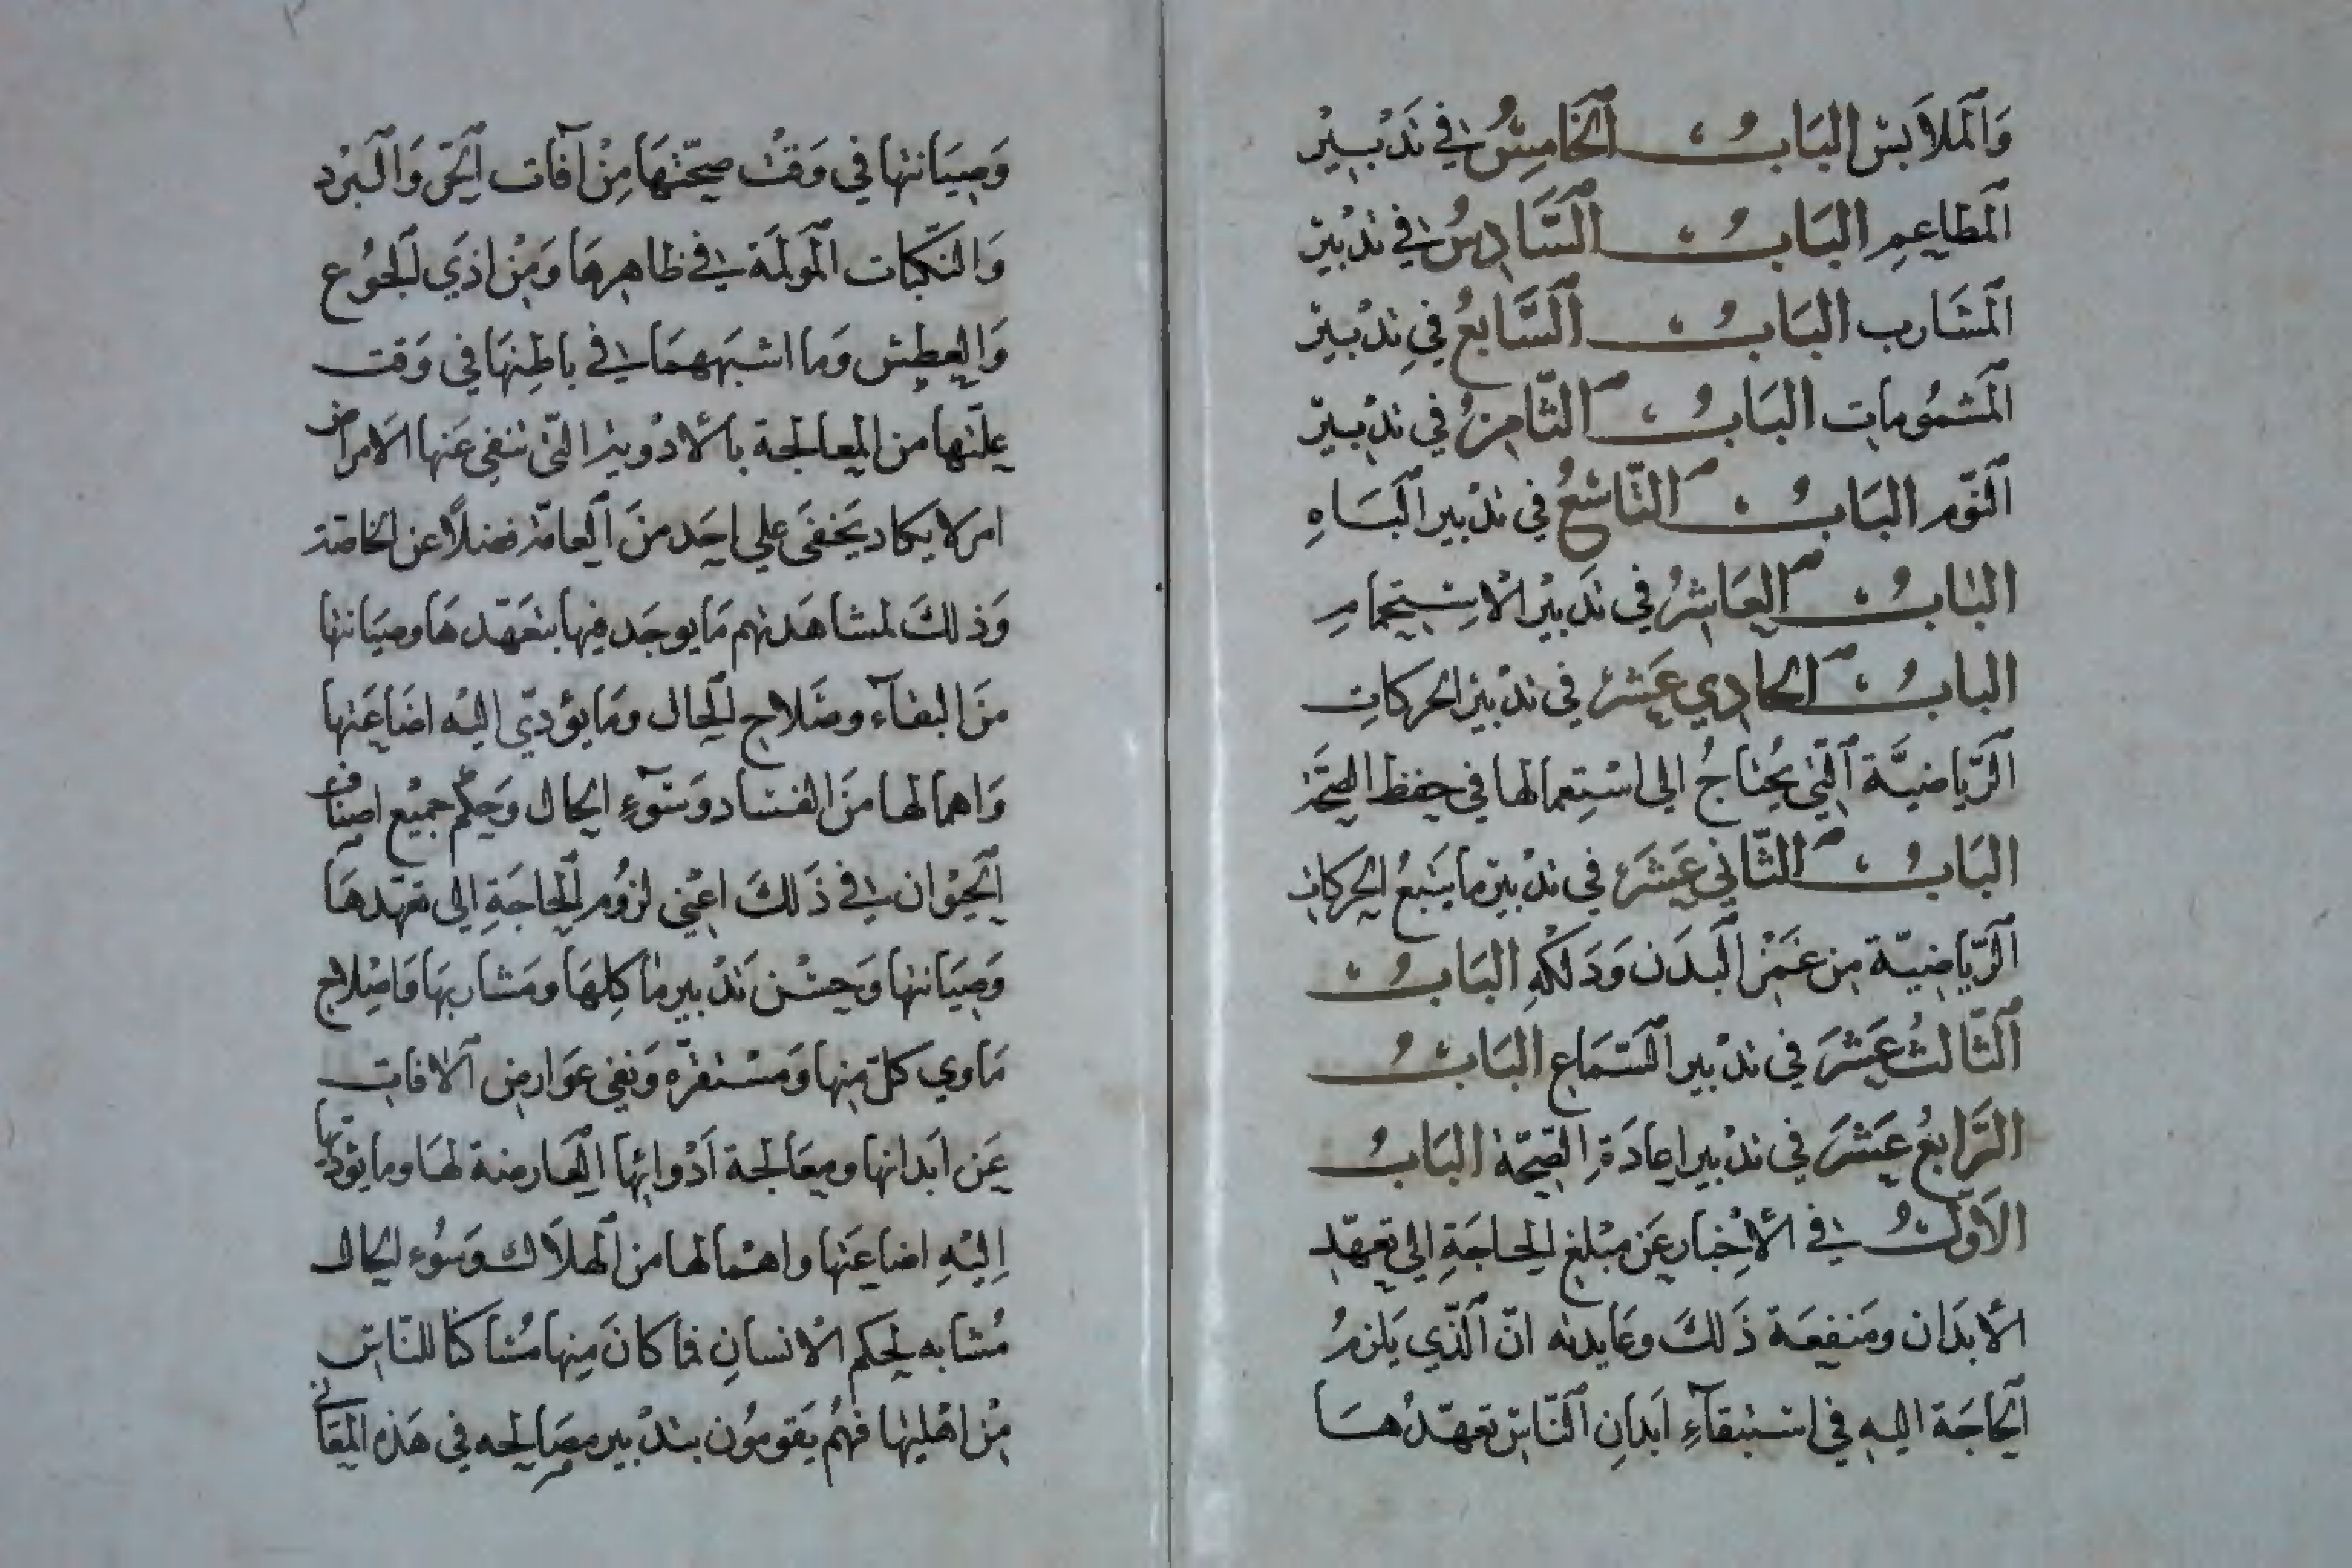 وَالمَلاَبس البَابُ الخَامِسُ في تَدْبِيْر
المَطاعِمِ البَابُ السَّادِسُ في تدْبيْر
المَشَارب البَابُ السَّابعُ في تدْبيْر
المَشمُومات البَابُ الثَّامِنُ في تدْبيْر
النَّوم البَابُ التَّاسِعُ في تدْبير البَاهِ
البَابُ العَاشِرُ في تَدبيْر الاسْتِحمامِ
البابُ الحادِي عَشَرَ في تدْبيْر الحركاتِ
الرّياضيَّة الّتي يُحْتاجُ الى اسْتِعمالها في حِفظ الصّحّة
البَابُ الثَّاني عَشَرَ في تدْبيْر ما يَتبعُ الحركات
الرّياضيّة من غَمْز البَدَن وَدَلكهِ البَابُ
الثَّالثُ عَشَرَ في تدْبير السَّمَاع البَابُ
الرَّابعُ عَشَرَ في تدْبير اعِادَةِ الصّحّة البَابُ
الاَوّلُ في الأخْبار عَن مَبْلغ الحاجَةِ الي تعَهّدِ
الأبدَان ومَنفِعَة ذَلكَ وعَايدته انّ الّذي يَلزمُ
الحَاجَة اليهِ في استبقآءِ اَبدانِ النّاسِ تعهّدُهَا
وَصِيَانتها في وَقْت صحّتهَا مِنْ آفات الحَرّ وَالبَرْد
وَالنّكبات المؤلمَة في ظاهِرهَا وَمِنْ اذَي الجُوع
وَالعطش وَما اشبَههمَا في باطِنهَا في وَقت
علّتها من المعالجة بالأدْوية الّتي تنفي عَنها الاَمراض
امر لا يكاد يَخفَى علي احَد منَ العامّة فضلاً عن الخاصّة
وَذلكَ لمشاهَدتهم مَا يوجَد فيها بتعَهّدهَا وصيَانتها
منَ البقآء وصَلاح الحال وَمَا يؤدّي اليْه اضَاعَتها
وَاهمالها منَ الفسَاد وَسَوءِ الحال وَحكم جميْع اصناف
الحَيْوان في ذَلكَ اعْني لزوُم الحاجَةِ الى تعهّدهَا
وَصيَانتها وَحسْن تدْبير مٰاكِلهَا ومَشاربهَا وَاصْلاح
مَاوي كلّ منها وَمسْتقرّه وَنفي عَوَارض الآفات
عَن اَبدانها ومعَالجة اَدْوائها العَارضة لهَا وما يؤدّيها
اِليْهِ اضاعَتها واهْمالها من الهَلاَك وَسُوء الحال
مُشابه لحكم الانسانِ فما كانَ مِنها مُشاكاً للنّاسِ
مِنْ اَهْليهَا فهُم يَقومُون بتدْبير مصَالحه في هَذه المعَاني